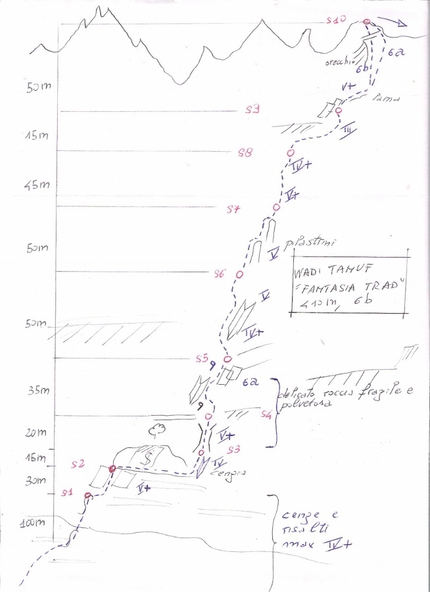 S10
orecchio
6b
6a
50m
V+
lama
S9
III
45m
S8
IV+
45m
V+
S7
pilastrini
V
50m
S6
WADI TAHUF
"FANTASIA TRAD"
410m, 6b
V
IV+
50m
S5
6a
35m
delicato roccia fragile e
polverosa
S4
20m
V+
S3
15m
S2
IV
cengia
30m
V+
S1
100m
cenge e
risalti
max IV+